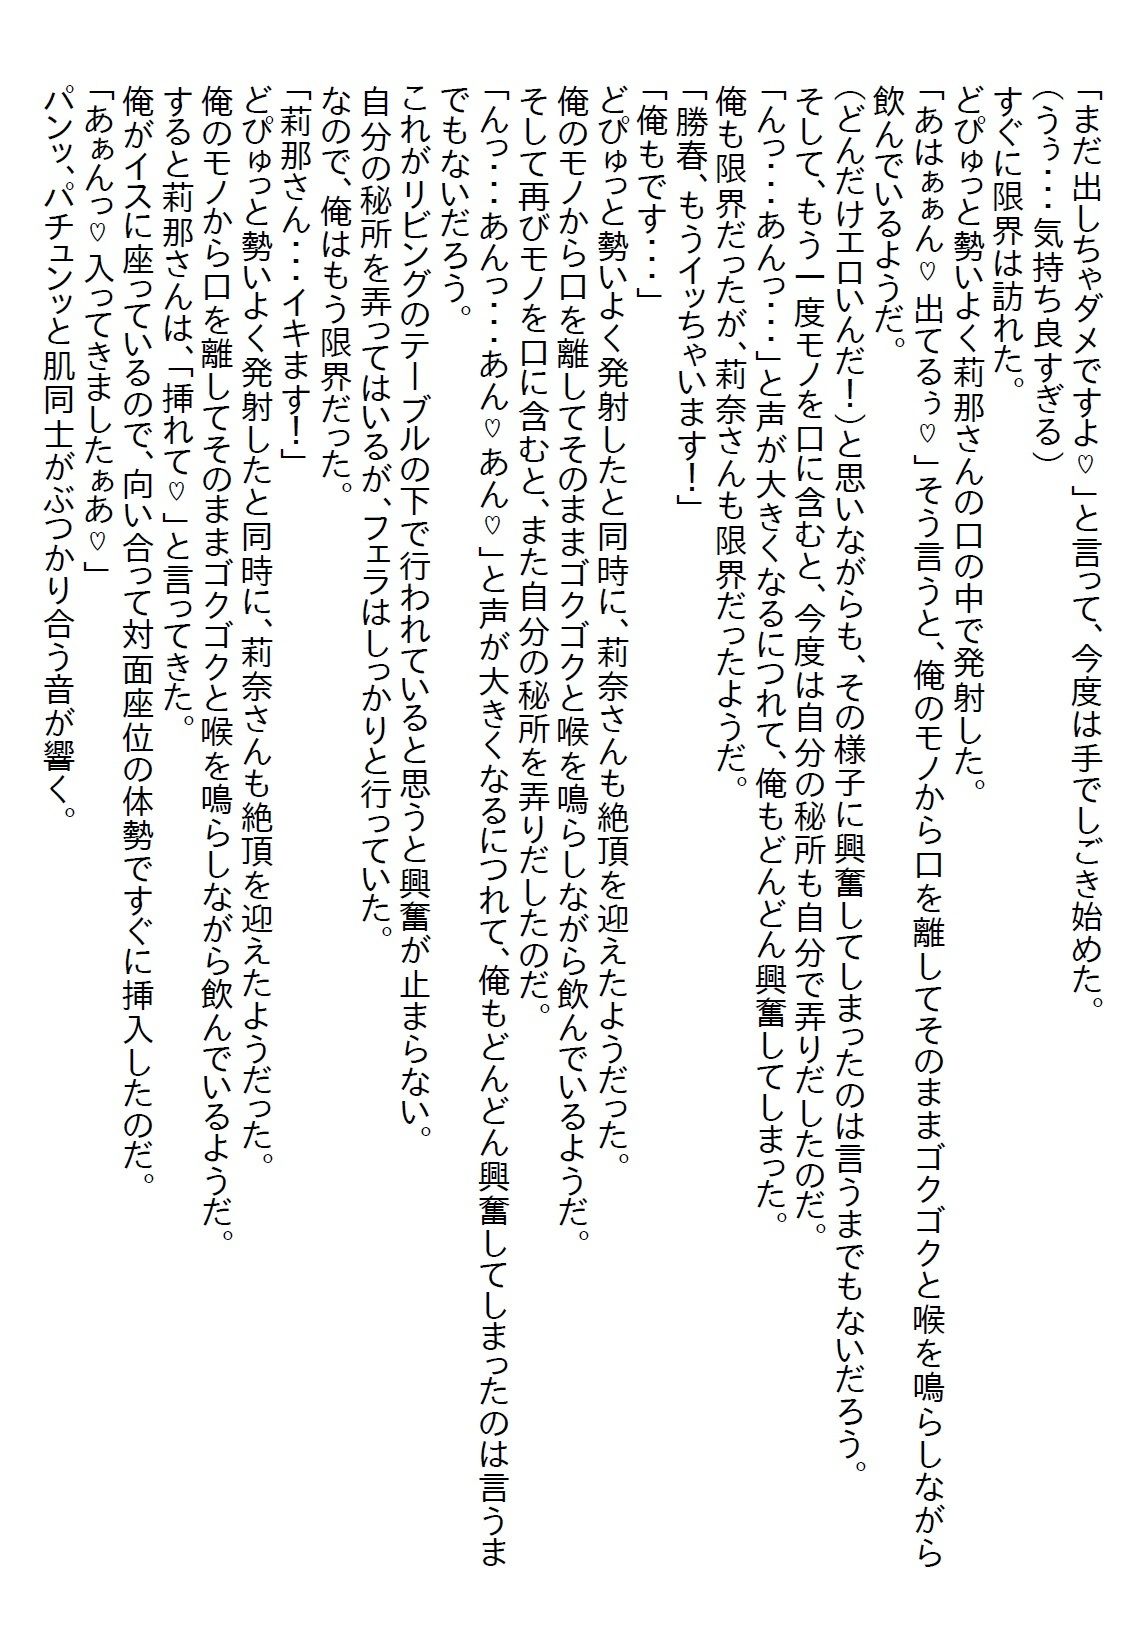 「まだ出しちゃダメですよ♡」と言って、今度は手でしごき始めた。
（うぅ・・・気持ち良すぎる）
すぐに限界は訪れた。
どぴゅっと勢いよく莉那さんの口の中で発射した。
「あはぁぁん♡出てるぅ♡」そう言うと、俺のモノから口を離してそのままゴクゴクと喉を鳴らしながら
飲んでいるようだ。
（どんだけエロいんだ！）と思いながらも、その様子に興奮してしまったのは言うまでもないだろう。
そして、もう一度モノを口に含むと、今度は自分の秘所も自分で弄りだしたのだ。
「んっ・・・あんっ・・・」と声が大きくなるにつれて、俺もどんどん興奮してしまった。
俺も限界だったが、莉奈さんも限界だったようだ。
「勝春、もうイッちゃいます！」
「俺もです・・・」
どぴゅっと勢いよく発射したと同時に、莉奈さんも絶頂を迎えたようだった。
俺のモノから口を離してそのままゴクゴクと喉を鳴らしながら飲んでいるようだ。
そして再びモノを口に含むと、また自分の秘所を弄りだしたのだ。
「んっ・・・あんっ・・・あん♡あん♡」と声が大きくなるにつれて、俺もどんどん興奮してしまったのは言うま
でもないだろう。
これがリビングのテーブルの下で行われていると思うと興奮が止まらない。
自分の秘所を弄ってはいるが、フェラはしっかりと行っていた。
なので、俺はもう限界だった。
「莉那さん・・・イキます！」
どぴゅっと勢いよく発射したと同時に、莉奈さんも絶頂を迎えたようだった。
俺のモノから口を離してそのままゴクゴクと喉を鳴らしながら飲んでいるようだ。
すると莉那さんは、「挿れて♡」と言ってきた。
俺がイスに座っているので、向い合って対面座位の体勢ですぐに挿入したのだ。
「あぁんっ♡入ってきましたぁあ♡」
パンッ、パチュンッと肌同士がぶつかり合う音が響く。